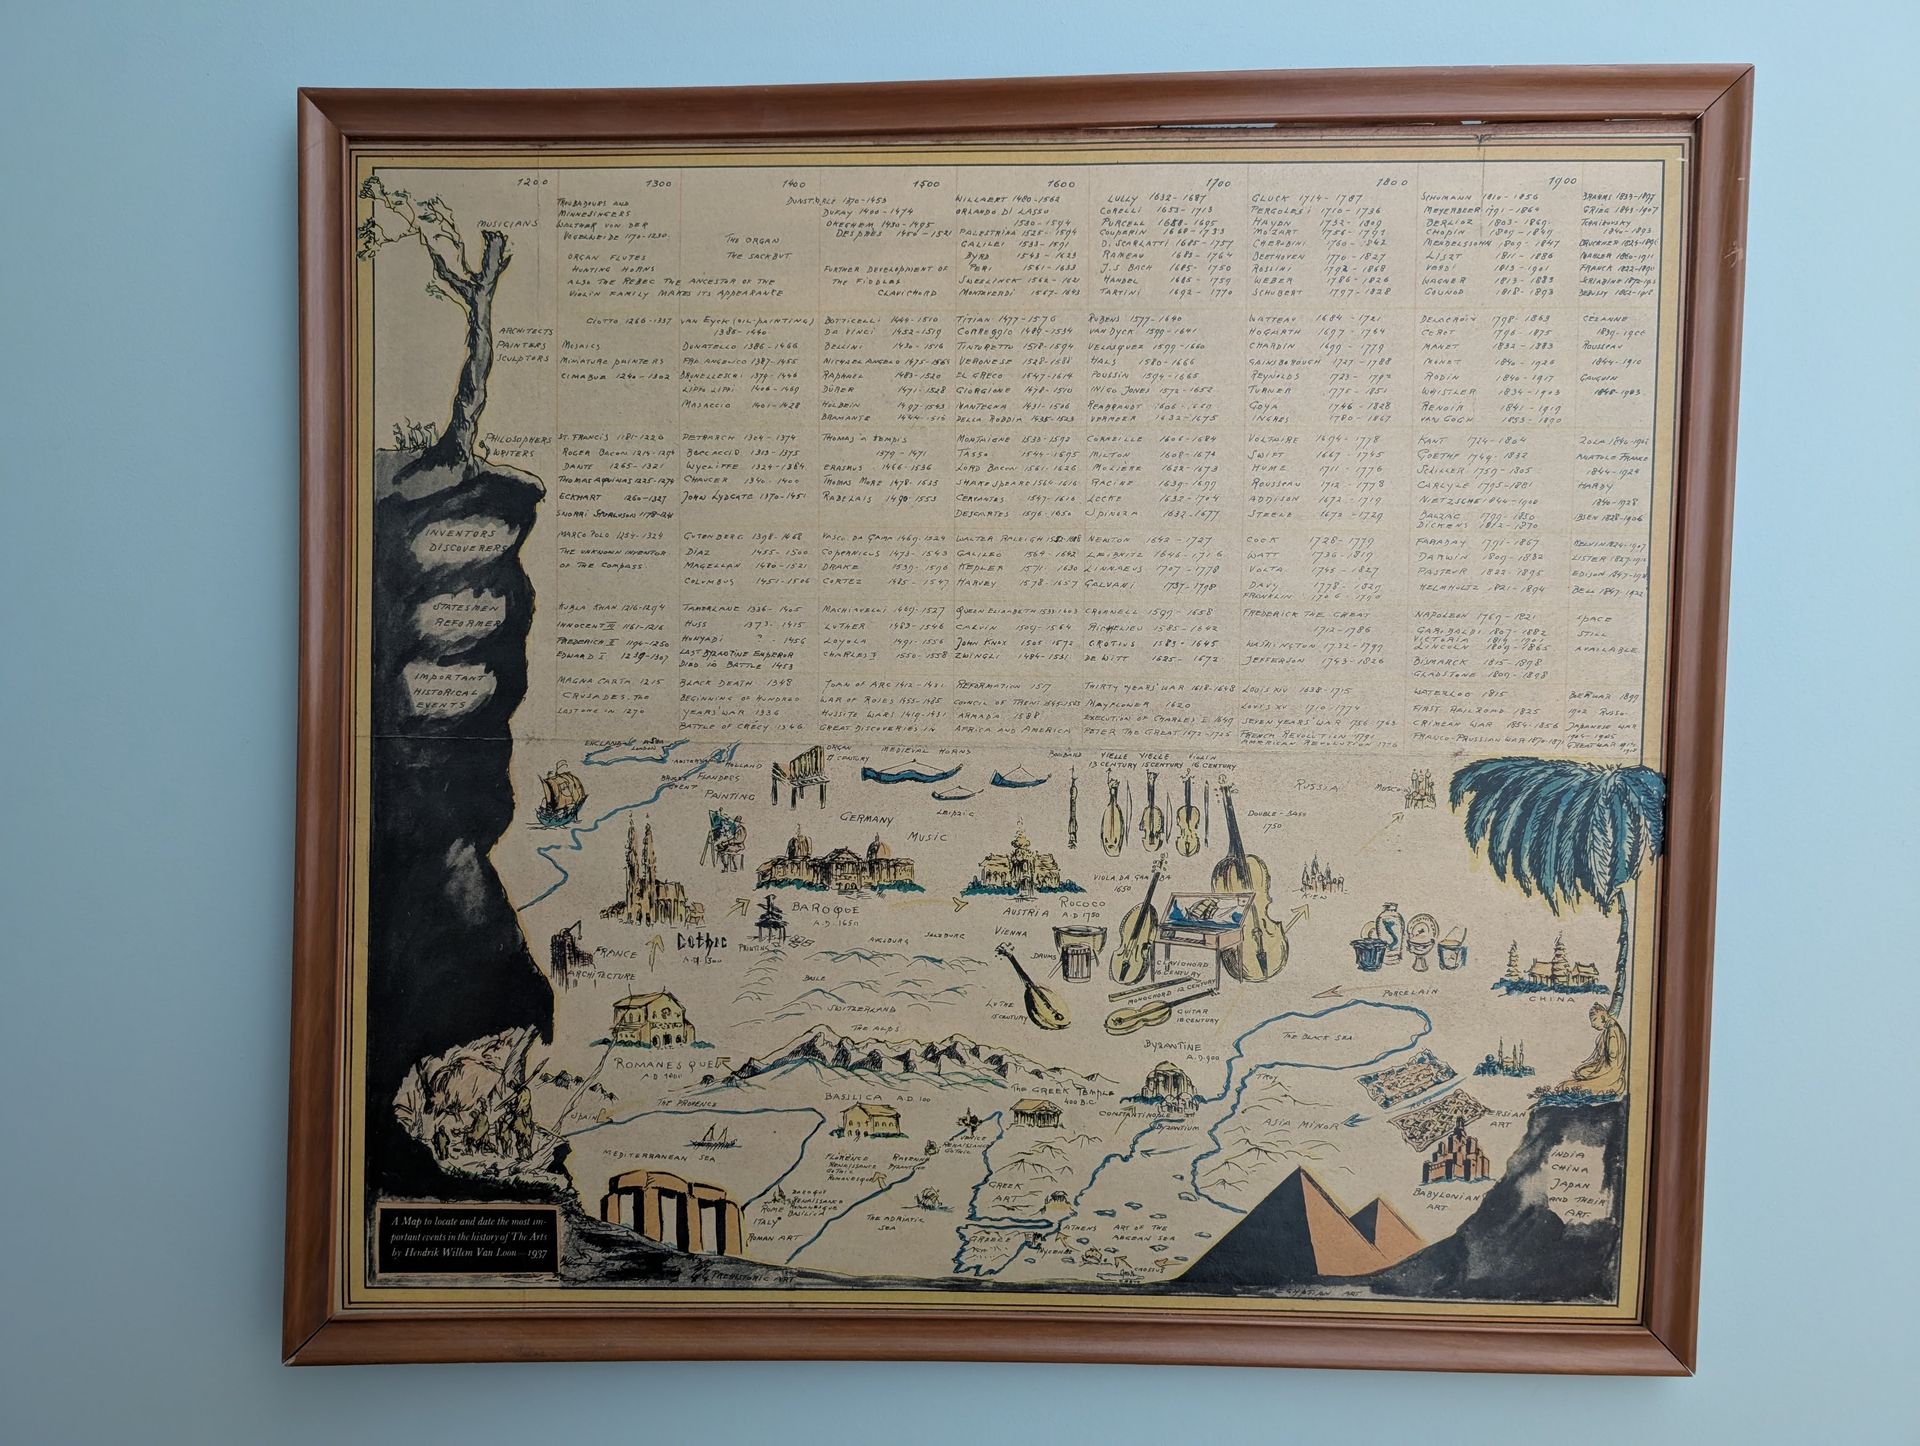 1200 1300 1400 1500 1600 1700 1800 1900
MUSICIANS
TROUBADOURS AND
MINNESINGERS
WALTHER VON DER
VOGELWEIDE 1170-1230
ORGAN FLUTES
HUNTING HORNS
ALSO THE REBEC THE ANCESTOR OF THE
VIOLIN FAMILY MAKES ITS APPEARANCE
THE ORGAN
THE SACKBUT
DUFAY 1400-1474
OKEGHEM 1430-1495
DESPRÉS 1450-1521
FURTHER DEVELOPMENT OF
THE FIDDLES
CLAVICHORD
WILLAERT 1480-1562
ORLANDO DI LASSO
1530-1594
PALESTRINA 1525-1594
GALILEI 1533-1591
BYRD 1543-1623
PERI 1561-1633
SWEELINCK 1562-1621
MONTEVERDI 1567-1643
LULLY 1632-1687
CORELLI 1653-1713
PURCELL 1658-1695
COUPERIN 1668-1733
D. SCARLATTI 1685-1757
RAMEAU 1683-1764
J.S. BACH 1685-1750
HANDEL 1685-1759
TARTINI 1692-1770
GLUCK 1714-1787
PERGOLESI 1710-1736
HAYDN 1732-1809
MOZART 1756-1791
CHERUBINI 1760-1842
BEETHOVEN 1770-1827
ROSSINI 1792-1868
WEBER 1786-1826
SCHUBERT 1797-1828
SCHUMANN 1810-1856
MEYERBEER 1791-1864
BERLIOZ 1803-1869
CHOPIN 1809-1849
MENDELSSOHN 1809-1847
LISZT 1811-1886
VERDI 1813-1901
WAGNER 1813-1883
GOUNOD 1818-1893
BRAHMS 1833-1897
GRIEG 1843-1907
TCHAIKOVSKY
1840-1893
BRUCKNER 1824-1896
MAHLER 1860-1911
FRANCK 1822-1890
DEBUSSY 1862-1918
ARCHITECTS
PAINTERS
SCULPTORS
GIOTTO 1266-1337
MOSAICS
MINIATURE PAINTERS
CIMABUE 1240-1302
VAN EYCK (OIL-PAINTING)
1385-1440
DONATELLO 1386-1466
FRA ANGELICO 1387-1455
BRUNELLESCHI 1379-1446
LIPPO LIPPI 1406-1469
MASACCIO 1401-1428
BOTTICELLI 1444-1510
DA VINCI 1452-1519
BELLINI 1430-1516
MICHAEL ANGELO 1475-1564
RAPHAEL 1483-1520
DÜRER 1471-1528
HOLBEIN 1497-1543
BRAMANTE 1444-1514
TITIAN 1477-1576
CORREGGIO 1489-1534
TINTORETTO 1518-1594
VERONESE 1528-1588
EL GRECO 1547-1614
GIORGIONE 1478-1510
MANTEGNA 1431-1506
DELLA ROBBIA 1435-1525
RUBENS 1577-1640
VAN DYCK 1599-1641
VELASQUEZ 1599-1660
HALS 1580-1666
POUSSIN 1594-1665
INIGO JONES 1572-1652
REMBRANDT 1606-1669
VERMEER 1632-1675
WATTEAU 1684-1721
HOGARTH 1697-1764
CHARDIN 1699-1779
GAINSBOROUGH 1727-1788
REYNOLDS 1723-1792
TURNER 1775-1851
GOYA 1746-1828
INGRES 1780-1867
DELACROIX 1798-1863
COROT 1796-1875
MANET 1832-1883
MONET 1840-1926
RODIN 1840-1917
WHISTLER 1834-1903
RENOIR 1841-1919
VAN GOGH 1853-1890
CEZANNE
1839-1906
ROUSSEAU
1844-1910
GAUGUIN
1848-1903
PHILOSOPHERS
WRITERS
ST. FRANCIS 1181-1226
ROGER BACON 1214-1294
DANTE 1265-1321
THOMAS AQUINAS 1225-1274
ECKHART 1260-1327
SNORRI STURLUSON 1178-1241
PETRARCH 1304-1374
BOCCACCIO 1313-1375
WYCLIFFE 1324-1384
CHAUCER 1340-1400
JOHN LYDGATE 1370-1451
THOMAS A KEMPIS
1379-1471
ERASMUS 1466-1536
THOMAS MORE 1478-1535
RABELAIS 1490-1553
MONTAIGNE 1533-1592
TASSO 1544-1595
LORD BACON 1561-1626
SHAKESPEARE 1564-1616
CERVANTES 1547-1616
DESCARTES 1596-1650
CORNEILLE 1606-1684
MILTON 1608-1674
MOLIERE 1622-1673
RACINE 1639-1699
LOCKE 1632-1704
SPINOZA 1632-1677
VOLTAIRE 1694-1778
SWIFT 1667-1745
HUME 1711-1776
ROUSSEAU 1712-1778
ADDISON 1672-1719
STEELE 1672-1729
KANT 1724-1804
GOETHE 1749-1832
SCHILLER 1759-1805
CARLYLE 1795-1881
NIETZSCHE 1844-1900
BALZAC 1799-1850
DICKENS 1812-1870
ZOLA 1840-1902
ANATOLE FRANCE
1844-1924
HARDY
1840-1928
IBSEN 1828-1906
INVENTORS
DISCOVERERS
MARCO POLO 1254-1324
THE UNKNOWN INVENTOR
OF THE COMPASS
GUTENBERG 1398-1468
DIAZ 1455-1500
MAGELLAN 1480-1521
COLUMBUS 1451-1506
VASCO DA GAMA 1469-1524
COPERNICUS 1473-1543
DRAKE 1539-1596
CORTEZ 1485-1547
WALTER RALEIGH 1552-1618
GALILEO 1564-1642
KEPLER 1571-1630
HARVEY 1578-1657
NEWTON 1642-1727
LEIBNITZ 1646-1716
LINNAEUS 1707-1778
GALVANI 1737-1798
COOK 1728-1779
WATT 1736-1819
VOLTA 1745-1827
DAVY 1778-1829
FRANKLIN 1706-1790
FARADAY 1791-1867
DARWIN 1809-1882
PASTEUR 1822-1895
HELMHOLTZ 1821-1894
KELVIN 1824-1907
LISTER 1827-1912
EDISON 1847-1931
BELL 1847-1922
STATESMEN
REFORMERS
KUBLA KHAN 1216-1294
INNOCENT III 1161-1216
FREDERICH II 1194-1250
EDWARD I 1239-1307
TAMERLANE 1336-1405
HUSS 1373-1415
HUNYADI ? -1456
LAST BYZANTINE EMPEROR
DIED IN BATTLE 1453
MACHIAVELLI 1469-1527
LUTHER 1483-1546
LOYOLA 1491-1556
CHARLES V 1550-1558
QUEEN ELIZABETH 1533-1603
CALVIN 1509-1564
JOHN KNOX 1505-1572
ZWINGLI 1484-1531
CROMWELL 1599-1658
RICHELIEU 1585-1642
GROTIUS 1583-1645
DE WITT 1625-1672
FREDERICK THE GREAT
1712-1786
WASHINGTON 1732-1799
JEFFERSON 1743-1826
NAPOLEON 1769-1821
GARIBALDI 1807-1882
VICTORIA 1819-1901
LINCOLN 1809-1865
BISMARCK 1815-1898
GLADSTONE 1809-1898
SPACE
STILL
AVAILABLE
IMPORTANT
HISTORICAL
EVENTS
MAGNA CARTA 1215
CRUSADES. THE
LAST ONE IN 1270
BLACK DEATH 1348
BEGINNING OF HUNDRED
YEARS' WAR 1336
BATTLE OF CRÉCY 1346
JOAN OF ARC 1412-1431
WAR OF ROSES 1455-1485
HUSSITE WARS 1419-1431
GREAT DISCOVERIES IN AFRICA AND AMERICA
REFORMATION 1517
COUNCIL OF TRENT 1545-1563
ARMADA 1588
THIRTY YEARS' WAR 1618-1648
MAYFLOWER 1620
EXECUTION OF CHARLES I 1649
PETER THE GREAT 1672-1725
LOUIS XIV 1638-1715
LOUIS XV 1710-1774
SEVEN YEARS' WAR 1756-1763
FRENCH REVOLUTION 1791
AMERICAN REVOLUTION 1776
WATERLOO 1815
FIRST RAILROAD 1825
CRIMEAN WAR 1854-1856
FRANCO-PRUSSIAN WAR 1870-1871
BOER WAR 1899
1902 RUSSO-
JAPANESE WAR
1904-1905
GREAT WAR 1914
1918
ENGLAND
LONDON
AMSTERDAM HOLLAND
FLANDERS
GHENT
PAINTING
ORGAN
17 CENTURY
MEDIEVAL HORNS
LEIPZIG
GERMANY
MUSIC
VIELLE
13 CENTURY
VIELLE
15 CENTURY
VIOLIN
16 CENTURY
DOUBLE-BASS
1750
RUSSIA
MOSCOW
KIEV
VIOLA DA GAMBA
1650
BAROQUE
A.D. 1650
AUSTRIA
ROCOCO
A.D 1750
VIENNA
Gothic
A.D. 1300
PRINTING
AUGSBURG
SALZBURG
FRANCE
ARCHITECTURE
BALE
SWITZERLAND
THE ALPS
DRUMS
CLAVICHORD
16 CENTURY
MONOCHORD 12 CENTURY
GUITAR
18 CENTURY
LUTHE
15 CENTURY
PORCELAIN
CHINA
ROMANESQUE
A.D. 1000
BYZANTINE
A.D. 900
THE BLACK SEA
THE PROVENCE
SPAIN
BASILICA A.D. 100
THE GREEK TEMPLE
400 B.C.
CONSTANTINOPLE
BYZANTIUM
TROY
ASIA MINOR
PERSIAN
ART
MEDITERRANEAN SEA
VENICE
RENAISSANCE
GOTHIC
FLORENCE
RENAISSANCE
GOTHIC
ROMANESQUE
RAVENNA
BYZANTINE
BAROQUE
RENAISSANCE
ROMANESQUE
BASILICA
ROME
ITALY
ROMAN ART
THE ADRIATIC
SEA
GREEK
ART
GREECE
ATHENS
MYCENAE
ART OF THE
AEGEAN SEA
CNOSSUS
BABYLONIAN
ART
INDIA
CHINA
JAPAN
AND THEIR
ART
PREHISTORIC ART
EGYPTIAN ART
A Map to locate and date the most im-
portant events in the history of The Arts
by Hendrik Willem Van Loon—1937